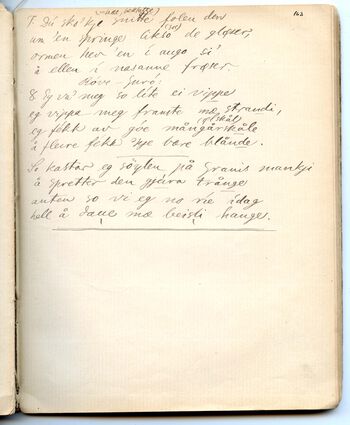 163
7. Du ska' kje snitte folen den
um 'en springe likso de glöser,
ormen hev 'en i augo si'
å ellen i nasanne fröser.
Höve-Guró:
8. Ey va' meg so lite ei vippe
eg vippa meg framte mæ strandi,
eg fekk av góe mångårskåle
å fleire fekk mye bære blånde.
So kastar eg söylen på Granis mankji
å spretter den gjóra trånge
anten so vi eg no rie idag
hell å daue mæ beisli hange.